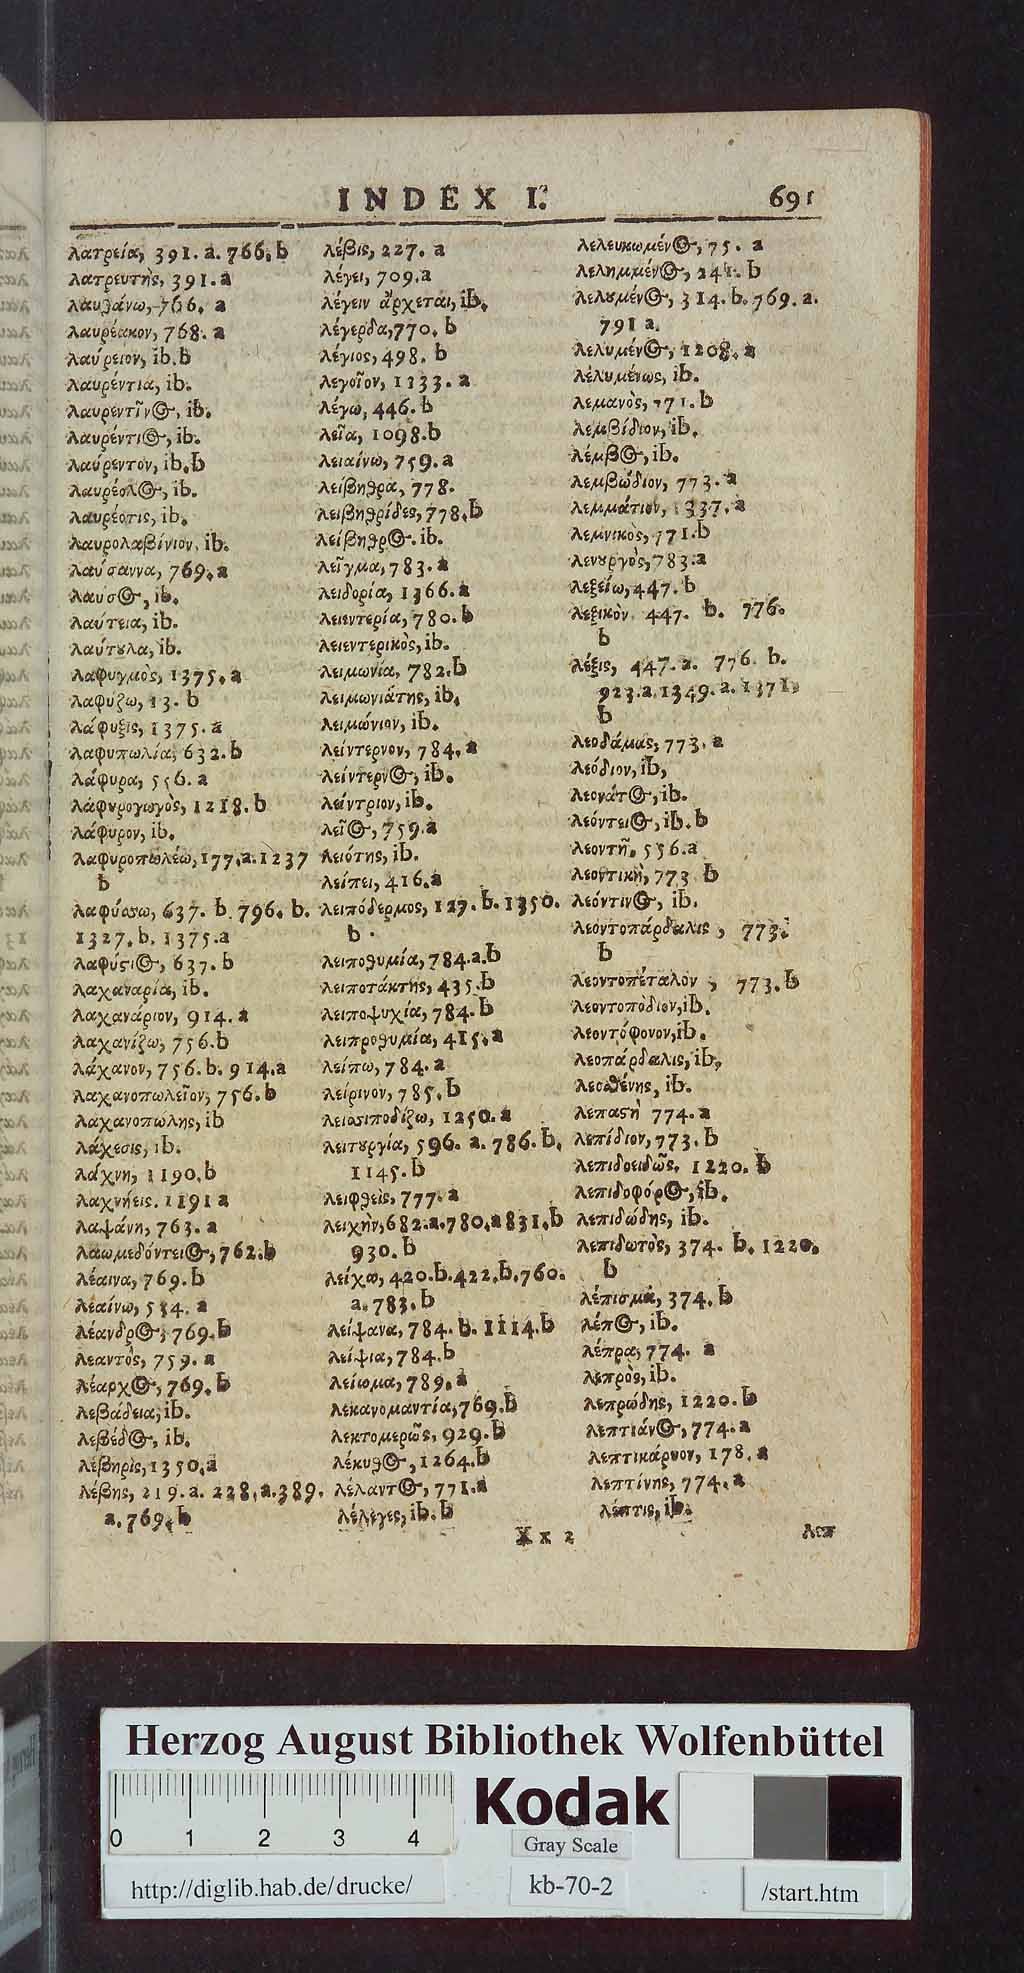 INDEX I.
691
λατρεία, 391. a. 766. b
λατρευτὴς, 391. a
λαυθάνω, 766. a
λαυρέακον, 768. a
λαύρειον, ib. b
λαυρέντια, ib.
λαυρεντῖνος, ib.
λαυρέντιος, ib.
λαύρεντον, ib. b
λαυρέολος, ib.
λαυρέοτις, ib.
λαυρολαβίνιον, ib.
λαύσαννα, 769. a
λαυσος, ib.
λαύτεια, ib.
λαύτȣλα, ib.
λαφυγμὸς, 1375. a
λαφύζω, 13. b
λάφυξις, 1375. a
λαφυπωλία, 632. b
λάφυρα, 556. a
λαφυρογωγὸς, 1218. b
λάφυρον, ib.
λαφυροπωλέω, 177. a. 1237
b
λαφύσσω, 637. b. 796. b.
1327. b. 1375. a
λαφύστιος, 637. b
λαχαναρία, ib.
λαχανάριον, 914. a
λαχανίζω, 756. b
λάχανον, 756. b. 914. a
λαχανοπωλεῖον, 756. b
λαχανοπώλης, ib
λάχεσις, ib.
λάχνη, 1190. b
λαχνήεις. 1191 a
λαψάνη, 763. a
λαωμεδόντειος, 762. b
λέαινα, 769. b
λεαίνω, 534. a
λέανδρος, 769. b
λεαντὸς, 759. a
λέαρχος, 769. b
λεβάδεια, ib.
λεβέδος, ib.
λέβηρὶς, 1350. a
λέβης, 219. a. 228. a. 389.
a. 769. b
λέβις, 227. a
λέγει, 709. a
λέγειν ἄρχεται, ib.
λέγερδα, 770. b
λέγιος, 498. b
λεγοῖον, 1333. a
λέγω, 446. b
λεῖα, 1098. b
λειαίνω, 759. a
λείβηθρα, 778.
λειβηθρίδες, 778. b
λείβηθρος. ib.
λεῖγμα, 783. a
λειδορία, 1366. a
λειεντερία, 780. b
λειεντερικὸς, ib.
λειμωνία, 782. b
λειμωνιάτης, ib.
λειμώνιον, ib.
λείντερνον, 784. a
λείντερνος, ib.
λείντριον, ib.
λεῖος, 759. a
λειότης, ib.
λείπει, 416. a
λειπόδερμος, 127. b. 1350.
b.
λειποθυμία, 784. a. b
λειποτάκτης, 435. b
λειποψυχία, 784. b
λειπροθυμία, 415. a
λείπω, 784. a
λείρινον, 785. b
λειοσιποδίζω, 1250. a
λειτȣργία, 596. a. 786. b.
1145. b
λειφθεὶς, 777. a
λειχὴν, 682. a. 780. a 831. b
930. b
λείχω, 420. b. 422. b. 760.
a. 783. b
λείψανα, 784. b. 1114. b
λείψια, 784. b
λείωμα, 789. a
λεκανομαντία, 769. b
λεκτομερῶς, 929. b
λέκυθος, 1264. b
λέλαντος, 771. a
λέλεγες, ib. b
λελευκωμένος, 75. a
λελημμένος, 241. b
λελȣμένος, 314. b. 769. a.
791 a.
λελυμένος, 1208. a
λελυμένως, ib.
λεμανὸς, 771. b
λεμβίδιον, ib.
λέμβος, ib.
λεμβώδιον, 773. a
λεμμάτιον, 1337. a
λεμνικὸς, 771. b
λενȣργὸς, 783. a
λεξείω, 447. b
λεξικὸν 447. b. 776.
b
λέξις, 447. a. 776. b.
923. a. 1349. a. 1371.
b
λεοδάμας, 773. a
λεόδιον, ib,
λεονάτος, ib.
λεόντειος, ib. b
λεοντῆ, 556. a
λεοντικὴ, 773 b
λεόντινος, ib.
λεοντοπάρδαλις, 773.
b
λεοντοπέταλον, 773. b
λεοντοπόδιον, ib.
λεοντόφονον, ib.
λεοπάρδαλις, ib,
λεοσθένης, ib.
λεπαστὴ 774. a
λεπίδιον, 773. b
λεπιδοειδῶς. 1220. b
λεπιδοφόρος, ib.
λεπιδώδης, ib.
λεπιδωτὸς, 374. b. 1220.
b
λέπισμα, 374. b
λέπος, ib.
λέπρα, 774. a
λεπρὸς, ib.
λεπρώδης, 1220. b
λεπτιάνος, 774. a
λεπτικάρυον, 178. a
λεπτίνης, 774. a
λέπτις, ib.
Xx 2
λεπ
Herzog August Bibliothek Wolfenbüttel
0 1 2 3 4
Kodak
Gray Scale
http://diglib.hab.de/drucke/
kb-70-2
/start.htm